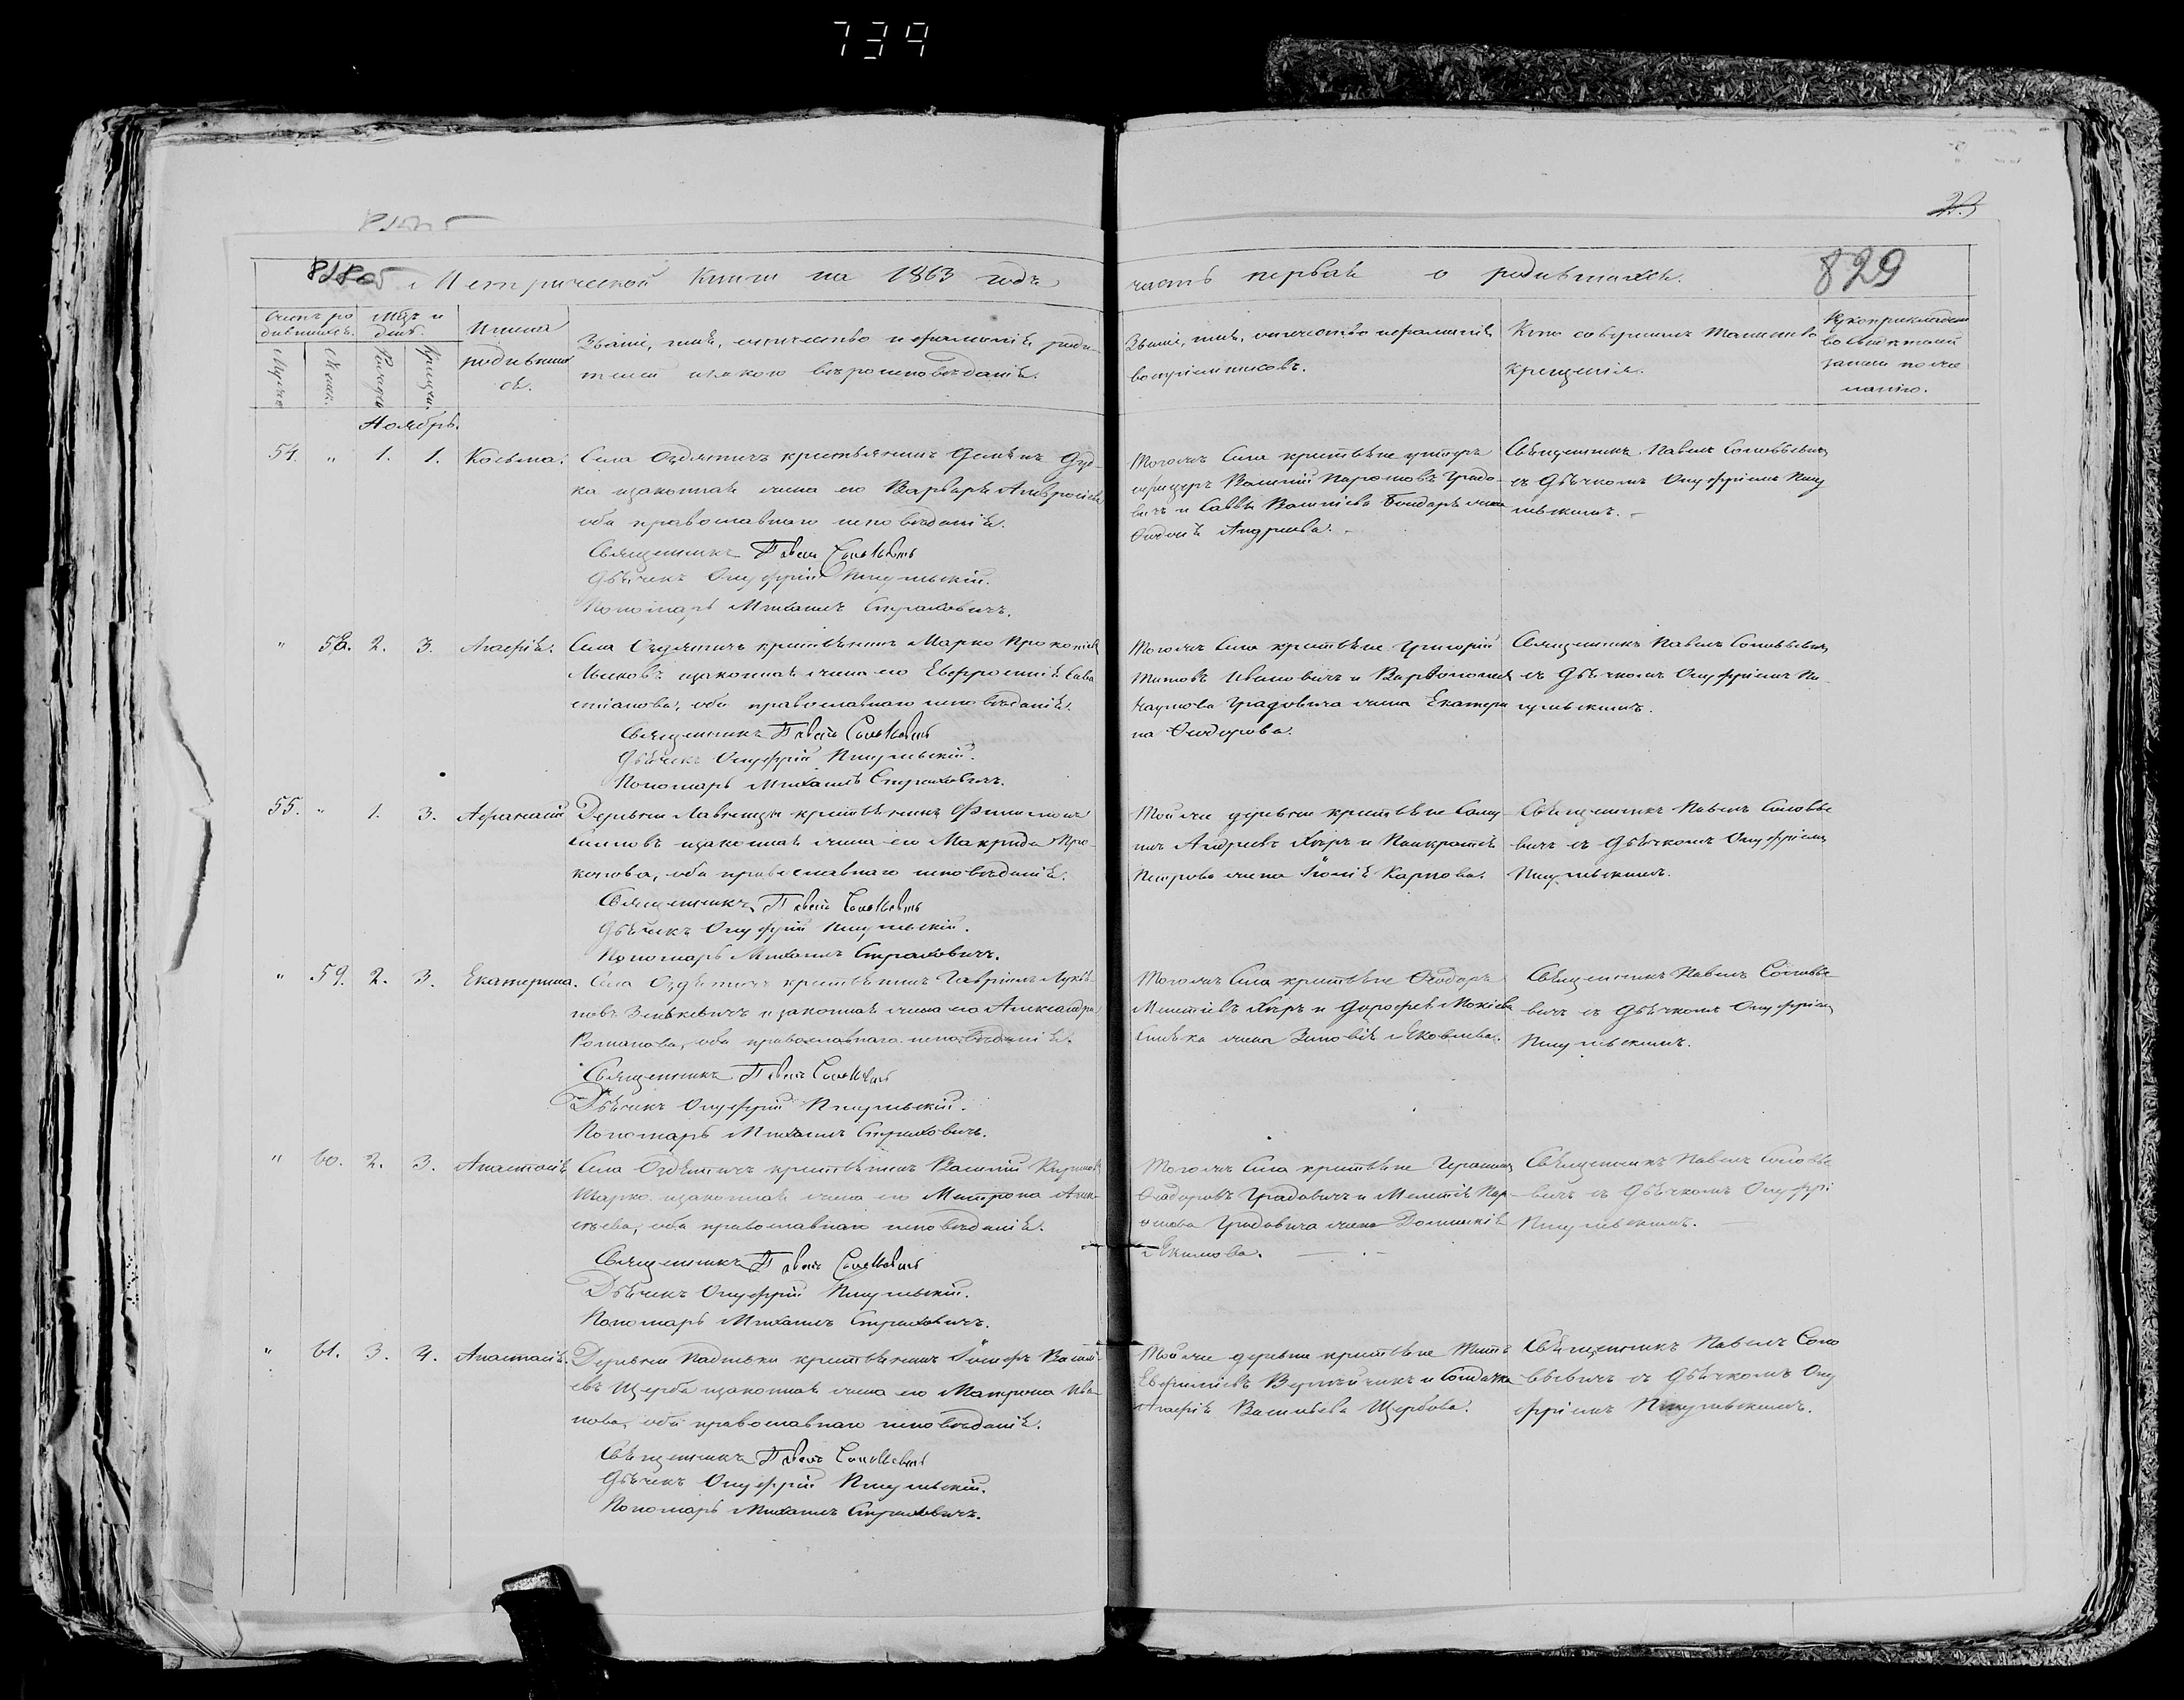 739
23
829
Метрической Книги на 1863 годъ
часть первая о родившихся.
Счетъ ро
дившихся.
Мѣс. и
день.
Имена
родивших
ся.
Званіе, имя, отчество и фамилія роди-
телей и какого вѣроисповѣданія.
Званіе, имя, отчество и фамилія
воспріемниковъ.
Кто совершалъ таинство
крещенія.
Рукоприкладство
свидѣтелей
записи по же
ланію.
Мужеска
Женск.
Рожденія
Крещен.
Ноябрь.
54. " 1. 1. Косьма.
Села Оздятичъ крестьянинъ
ка и законная жена его Варвара Амвросіева
оба православнаго исповѣданія.
Священникъ Павелъ Соловьевичъ
Дьячекъ Онуфрій Пигулевскій.
Пономарь Михаилъ Страховичъ.
Тогожъ Села крестьяне унтеръ
офицеръ Василій Парѳеновъ Градо-
вичъ и Саввы Васильева Бондаря жена
Ѳеодосія Андреева.
Священникъ Павелъ Соловьевичъ
съ Дьячкомъ Онуфріемъ Пигу
левскимъ.
" 58. 2. 3. Агафія.
Села Оздятичъ крестьянинъ Марко Прокопіевъ
и законная жена его Евфросинія Сава
стіанова, оба православнаго исповѣданія.
Священникъ Павелъ Соловьевичъ
Дьячекъ Онуфрій Пигулевскій.
Пономарь Михаилъ Страховичъ.
Тогожъ Села крестьяне Григорій
Титовъ Ивановичъ и Варѳоломея
Наумова Градовича жена Екатери
на Ѳеодорова.
Священникъ Павелъ Соловьевичъ
съ Дьячкомъ Онуфріемъ Пи-
гулевскимъ.
55. " 1. 3. Афанасій
Деревни крестьянинъ Филимонъ
и законная жена его Макрида Про-
копова, оба православнаго исповѣданія.
Священникъ Павелъ Соловьевичъ
Дьячекъ Онуфрій Пигулевскій.
Пономарь Михаилъ Страховичъ.
Той же деревни крестьяне Саму
илъ Андреевъ Хиръ и Панкратія
Петрова жена Іюнія Карпова.
Священникъ Павелъ Соловье
вичъ съ Дьячкомъ Онуфріемъ
Пигулевскимъ.
" 59. 2. 3. Екатерина.
Села Оздятичъ крестьянинъ Гавріилъ Лукья-
новъ Зенькевичъ и законная жена его Александра
Романова, оба православнаго исповѣданія.
Священникъ Павелъ Соловьевичъ
Дьячекъ Онуфрій Пигулевскій.
Пономарь Михаилъ Страховичъ.
Тогожъ Села крестьяне Ѳеодоръ
Мелетіевъ Хиръ и Дорофея Мокіева
жена Зиновія Яковлева.
Священникъ Павелъ Соловье
вичъ съ Дьячкомъ Онуфріемъ
Пигулевскимъ.
" 60. 2. 3. Анастасія
Села Оздятичъ крестьянинъ Василій
и законная жена его Матрона Алек-
сѣева, оба православнаго исповѣданія.
Священникъ Павелъ Соловьевичъ
Дьячекъ Онуфрій Пигулевскій.
Пономарь Михаилъ Страховичъ.
Тогожъ Села крестьяне Герасимъ
Ѳеодоровъ Градовичъ и Мелетія Пар-
ѳенова Градовича жена Домникія
Якимова.
Священникъ Павелъ Соловье
вичъ съ Дьячкомъ Онуфрі
Пигулевскимъ.
" 61. 3. 4. Анастасія.
Деревни крестьянинъ Іосифъ Василь-
евъ Щерба и законная жена его Матрона Ива-
нова, оба православнаго исповѣданія.
Священникъ Павелъ Соловьевичъ
Дьячекъ Онуфрій Пигулевскій.
Пономарь Михаилъ Страховичъ.
Той же деревни крестьяне Титъ
Евфиміевъ и Солдатка
Агафія Васильева Щербова.
Священникъ Павелъ Соло
вьевичъ съ Дьячкомъ Ону
фріемъ Пигулевскимъ.